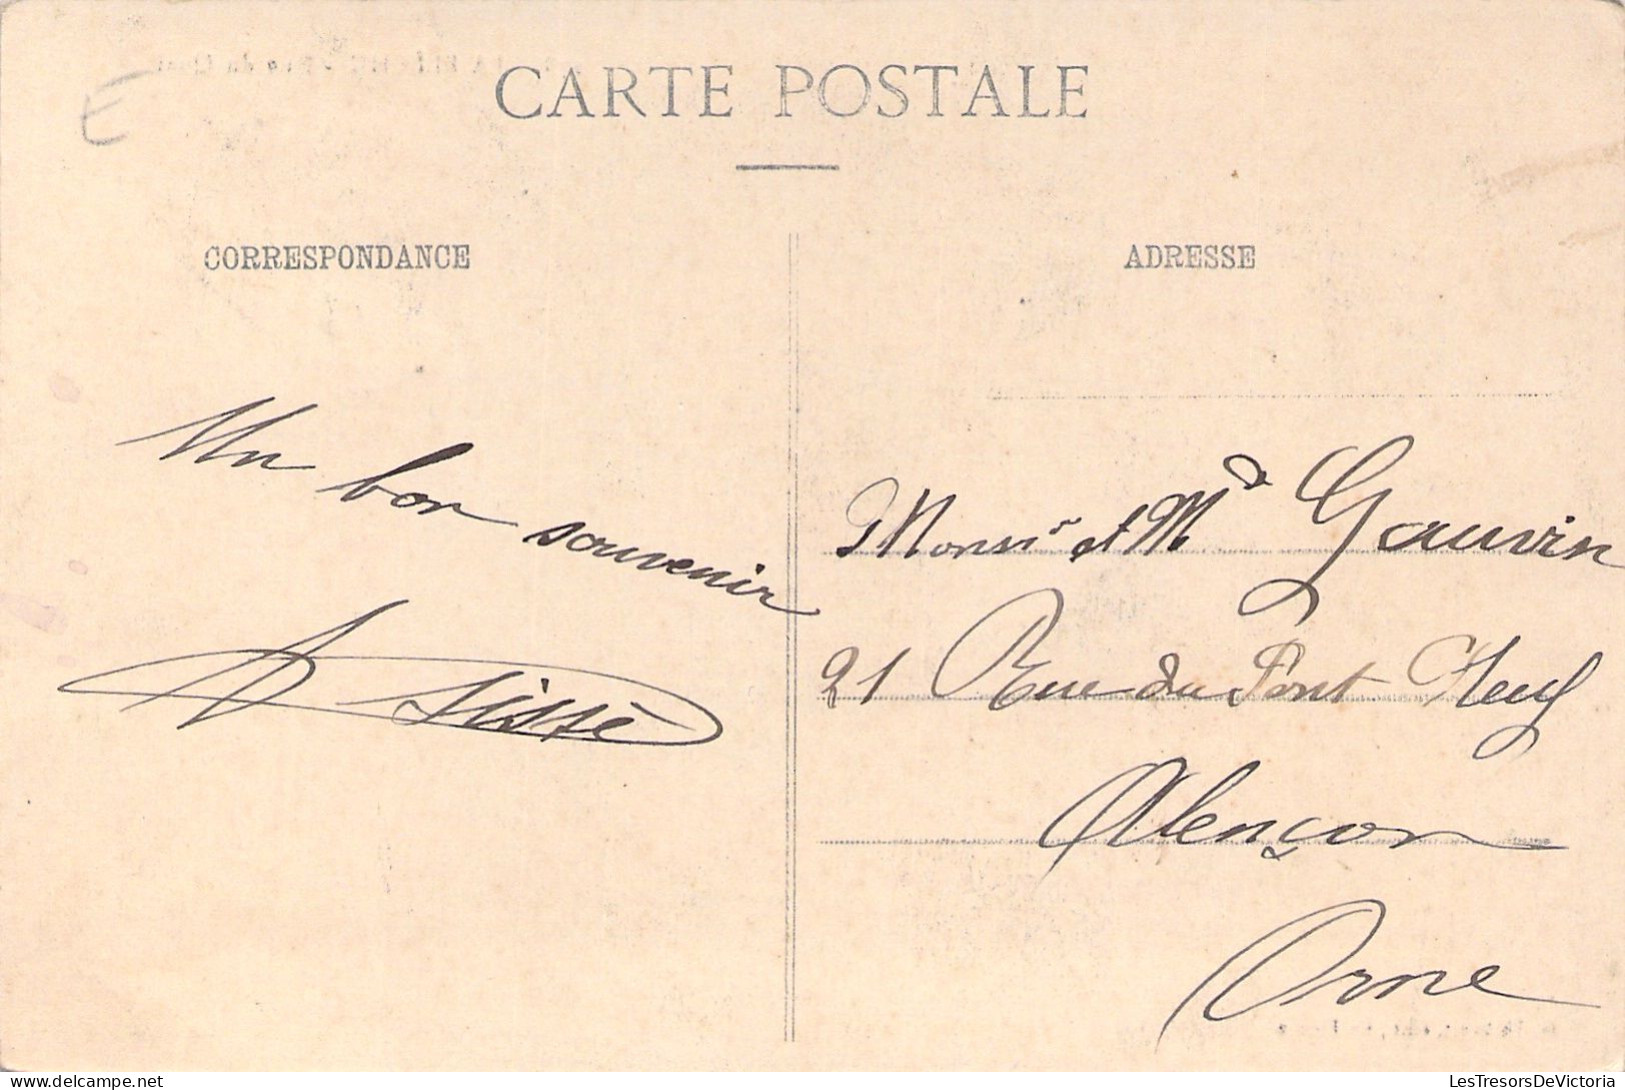 E
CARTE POSTALE
CORRESPONDANCE
ADRESSE
Un bon souvenir
Monsr et Md Gauvin
21 Rue du Pont Neuf
Alençon
Orne
delcampe.net
LesTresorsDeVictoria